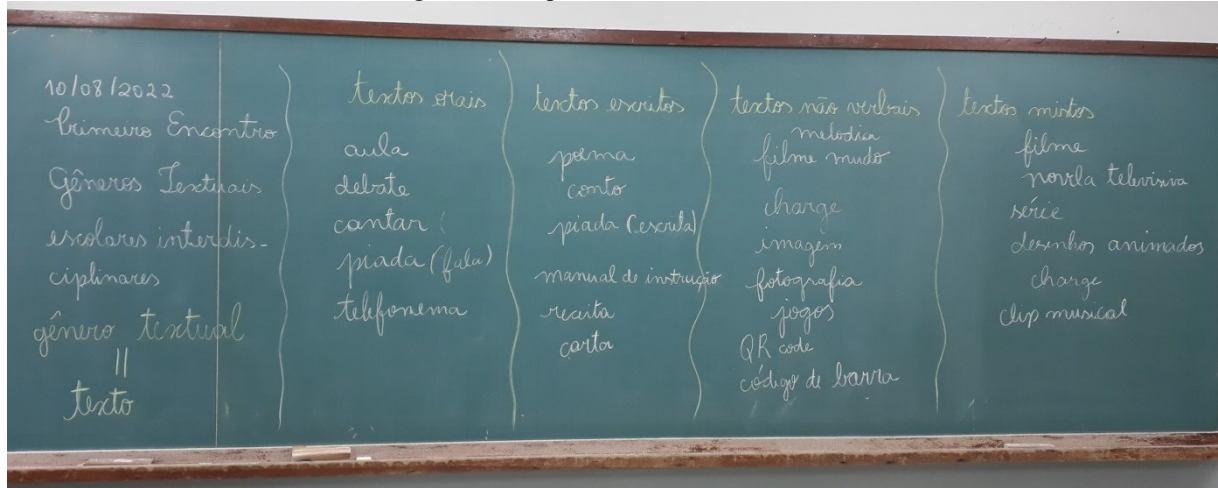 10/08/2022
Primeiro Encontro
Gêneros Textuais
escolares interdis-
ciplinares
gênero textual
=
texto
textos orais
aula
debate
cantar (
piada (fala)
telefonema
textos escritos
poema
conto
piada (escrita)
manual de instrução
receita
carta
textos não verbais
melodia
filme mudo
charge
imagem
fotografia
jogos
QR code
código de barra
textos mistos
filme
novela televisiva
série
desenhos animados
charge
clip musical